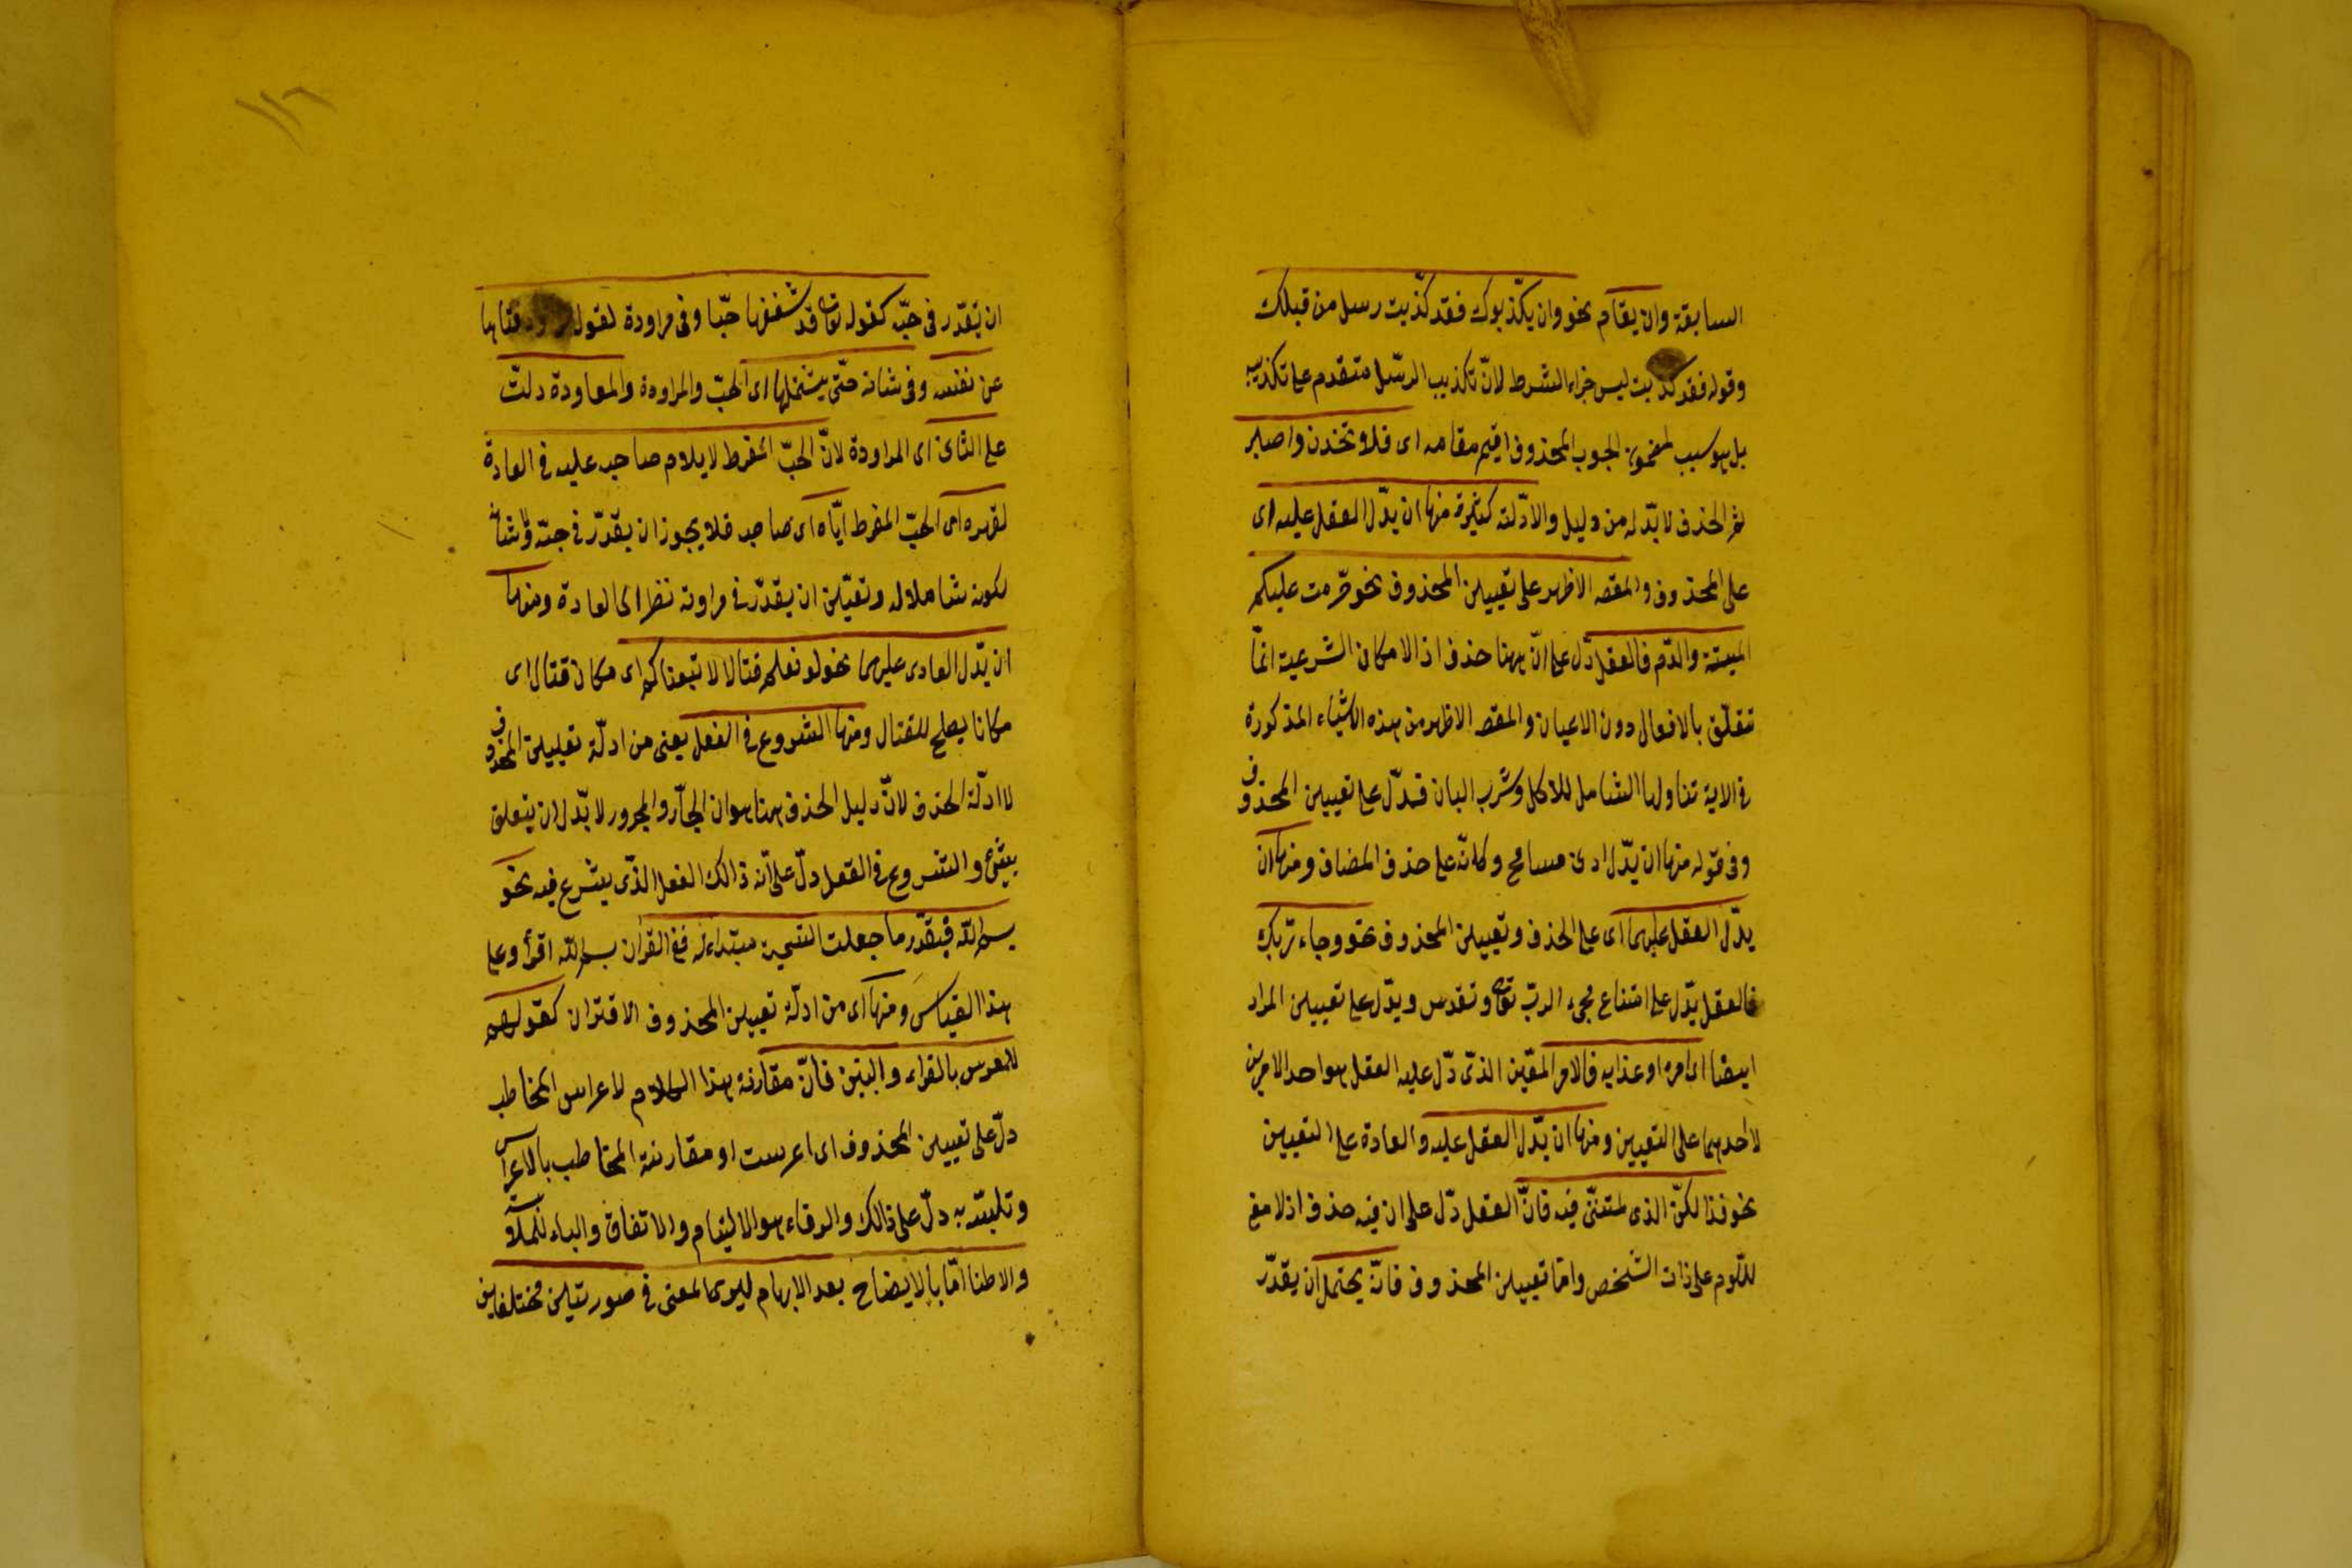 السابقة وان يقام نحو وان يكذّبوك فقد كذّبت رسل من قبلك
وقوله فقد كذبت ليس جزاء الشرط لانّ تكذيب الرسل متقدم على تكذيبه
بل هو سبب لمضمون الجوب المحذوف اقيم مقامه اى فلا تحزن واصبر
ثم الحذف لا بدّ له من دليل والادّلة كثيرة منها ان يدّل العقل عليه اى
على المحذوف والمقصه الاظهر على تعيين المحذوف نحو حرّمت عليكم
الميتة والدّم فالعقل دّل على انّ ههنا حذف اذ الامكان الشرعية انمّا
تتعلّق بالافعال دون الاعيان والمقصه الاظهر من هذه الاشياء المذكورة
فى الاية تناولها الشامل للاكل وشرب البان فدّل على تعيين المحذوف
وفى قوله منها ان يدّل ادنى مسامح وكانّه على حذف المضاف ومنها ان
يدّل العقل عليهما اى على الحذف وتعيين المحذوف نحو وجاء ربّك
فالعقل يدّل على امتناع مجىء الربّ تعالى وتقدس ويدّل على تعيين المراد
ايضا اى امره او عذابه فالامر المعّين الذّى دّل عليه العقل هو احد الامرين
لا احدهما على التعيين ومنها ان يدّل العقل عليه والعادة على التعيين
نحو فذا لكنّ الذى لمتننّى فيه فانّ العقل دّل على ان فيه حذف اذ لا معنى
للّوم على ذات الشخص وامّا تعيين المحذوف فانّه يحتمل ان يقدّر
١١٢
ان يقدّر فى حبّه كقوله تعالى قد شغفها حبّا وفى مراودة لقوله تراود فتاها
عن نفسه وفى شانه حتّى يشملها اى الحبّ والمراودة والمعاودة دلّت
على الثانى اى المراودة لانّ الحبّ المفرط لا يلام صاحبه عليه فى العادة
لقهره اى الحبّ المفرط ايّاه اى صاحبه فلا يجوز ان يقدّر فى حبّه وفى شانه
لكونه شاملا له وتعيّن ان يقدّر فى مراوته نظرا الى العادة ومنها
ان يدّل العادى عليهما نحو لو نعلم قتالا لا تبعناكم اى مكان قتال اى
مكانا يصلح للقتال ومنها الشروع فى الفعل يعنى من ادلّة تعيين المحذوف
لا ادلّة الحذف لانّ دليل الحذف ههنا هو ان الجارّ والمجرور لا بدّ ان يتعلق
بشئ والشروع فى الفعل دلّ على انّه ذالك الفعل الذّى يشرع فيه نحو
بسم الله فيقدّر ما جعلت التسمية مبتداء له ففى القرأن بسم الله اقرأ وعلى
هذا القياس ومنها اى من ادلّة تعيين المحذوف الاقتران كقولهم
للمعرس بالفراء والبنين فانّ مقارنة هذا الكلام لاعراس المخاطب
دلّ على تعيين المحذوف اى اعرست او مقارنة المخاطب بالاعراس
وتلبسّه به دلّ على ذالك والرفاء هو الاليتام والاتفاق والباء للملابسة
والاطنا امّا بالايضاح بعد الابهام ليرى المعنى فى صورتين مختلفين